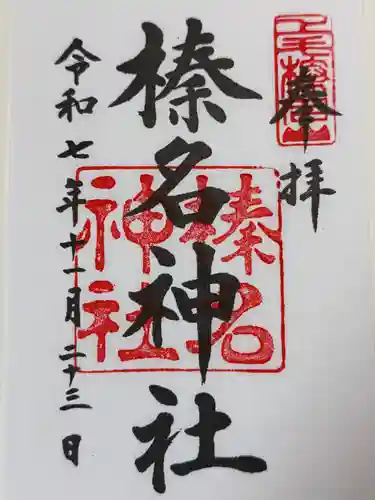 奉拝
上毛榛名山
榛名神社
榛名神社
令和七年十一月二十三日